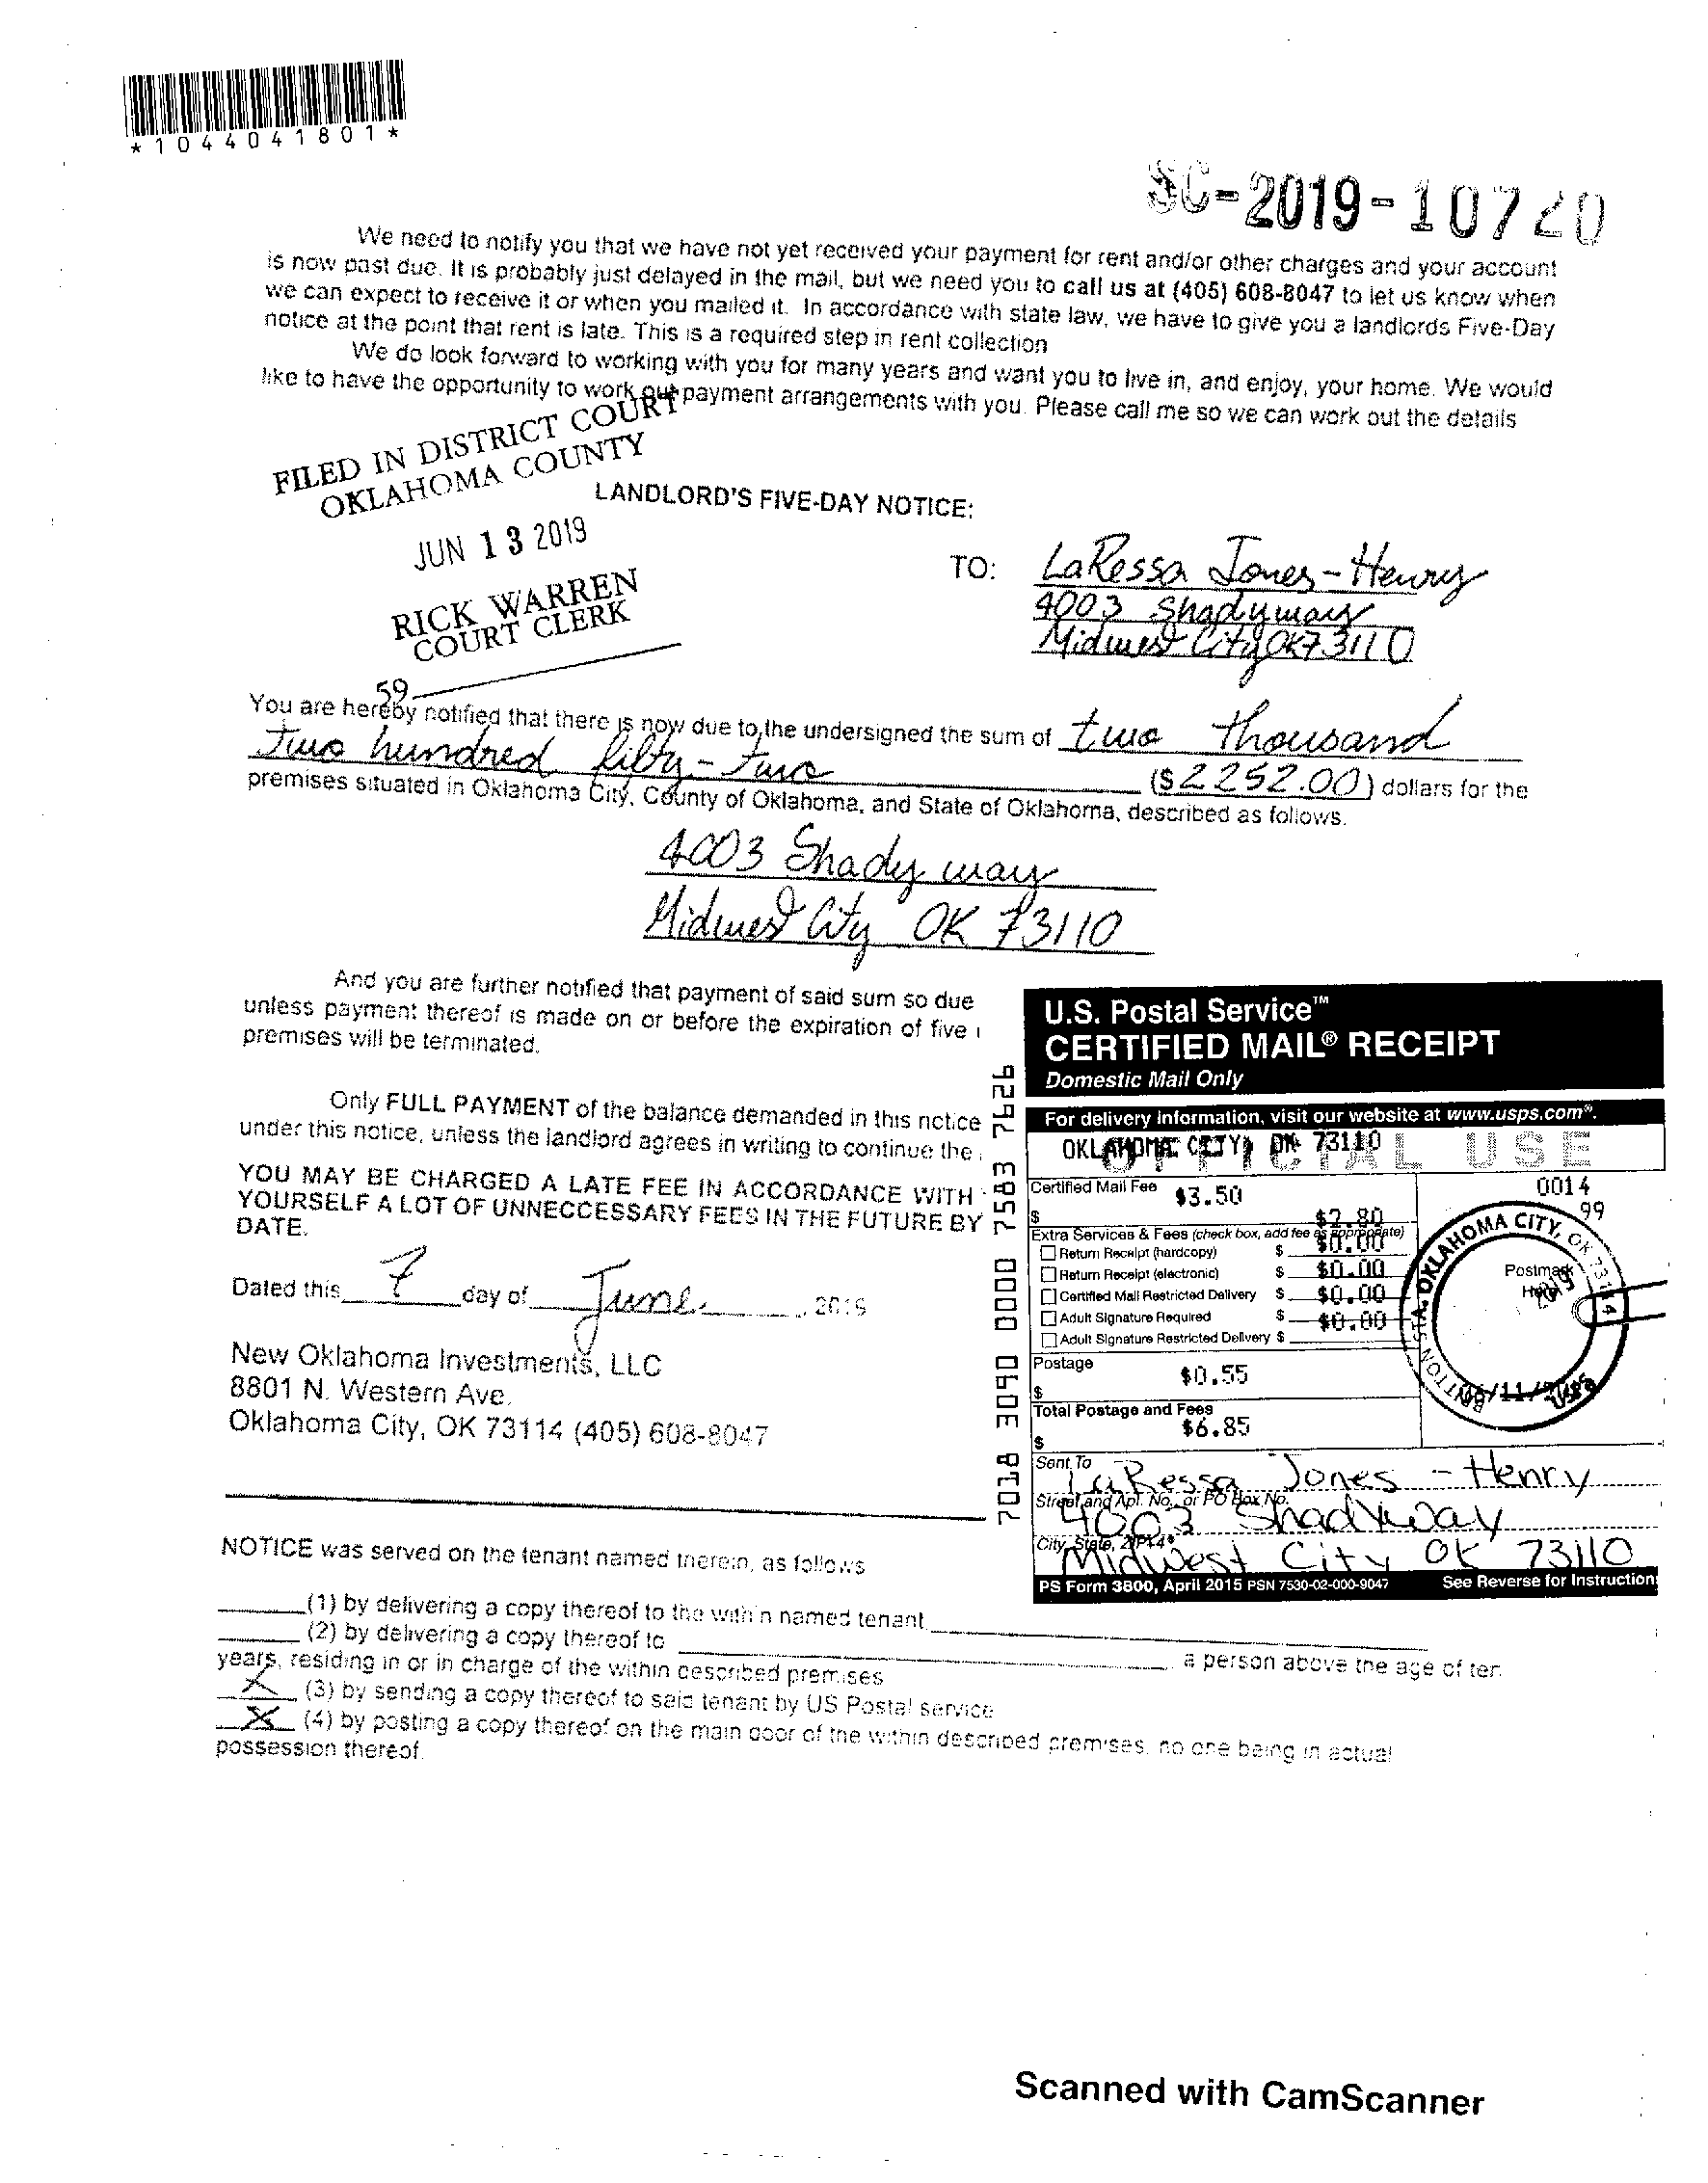 *1044041801*
SC-2019-10720
We need to notify you that we have not yet received your payment for rent and/or other charges and your account
is now past due. It is probably just delayed in the mail, but we need you to call us at (405) 608-8047 to let us know when
we can expect to receive it or when you mailed it. In accordance with state law, we have to give you a landlords Five-Day
notice at the point that rent is late. This is a required step in rent collection
We do look forward to working with you for many years and want you to live in, and enjoy, your home. We would
like to have the opportunity to work out payment arrangements with you. Please call me so we can work out the details
FILED IN DISTRICT COURT
OKLAHOMA COUNTY
JUN 13 2019
RICK WARREN
COURT CLERK
59
LANDLORD'S FIVE-DAY NOTICE:
TO: LaRessa Jones-Henry
4003 Shadyway
Midwest City OK 73110
You are hereby notified that there is now due to the undersigned the sum of two thousand
Two hundred fifty-two ($2252.00) dollars for the
premises situated in Oklahoma City, County of Oklahoma, and State of Oklahoma, described as follows.
4003 Shady way
Midwest City OK 73110
And you are further notified that payment of said sum so due
unless payment thereof is made on or before the expiration of five
premises will be terminated.
Only FULL PAYMENT of the balance demanded in this notice
under this notice, unless the landlord agrees in writing to continue the
YOU MAY BE CHARGED A LATE FEE IN ACCORDANCE WITH
YOURSELF A LOT OF UNNECCESSARY FEES IN THE FUTURE BY
DATE.
Dated this 7 day of June, 2019
New Oklahoma Investments, LLC
8801 N. Western Ave.
Oklahoma City, OK 73114 (405) 608-8047
7018 3090 0000 7583 7626
U.S. Postal Service™
CERTIFIED MAIL® RECEIPT
Domestic Mail Only
For delivery information, visit our website at www.usps.com®.
OKLAHOMA CITY, OK 73110
OFFICIAL USE
Certified Mail Fee $3.50
0014
99
$ $2.80
Extra Services & Fees (check box, add fee as appropriate)
Return Receipt (hardcopy) $ $0.00
Return Receipt (electronic) $ $0.00
Certified Mail Restricted Delivery $ $0.00
Adult Signature Required $ $0.00
Adult Signature Restricted Delivery $
Postmark
Here
Postage
$ $0.55
Total Postage and Fees
$ $6.85
BRITTON STA. OKLAHOMA CITY, OK 73114
USPS
Sent To LaRessa Jones-Henry
Street and Apt. No., or PO Box No. 4003 Shadyway
City, State, ZIP+4® Midwest City OK 73110
PS Form 3800, April 2015 PSN 7530-02-000-9047 See Reverse for Instructions
NOTICE was served on the tenant named therein, as follows
(1) by delivering a copy thereof to the within named tenant
(2) by delivering a copy thereof to a person above the age of ten
years, residing in or in charge of the within described premises
X (3) by sending a copy thereof to said tenant by US Postal service
X (4) by posting a copy thereof on the main door of the within described premises, no one being in actual
possession thereof.
Scanned with CamScanner